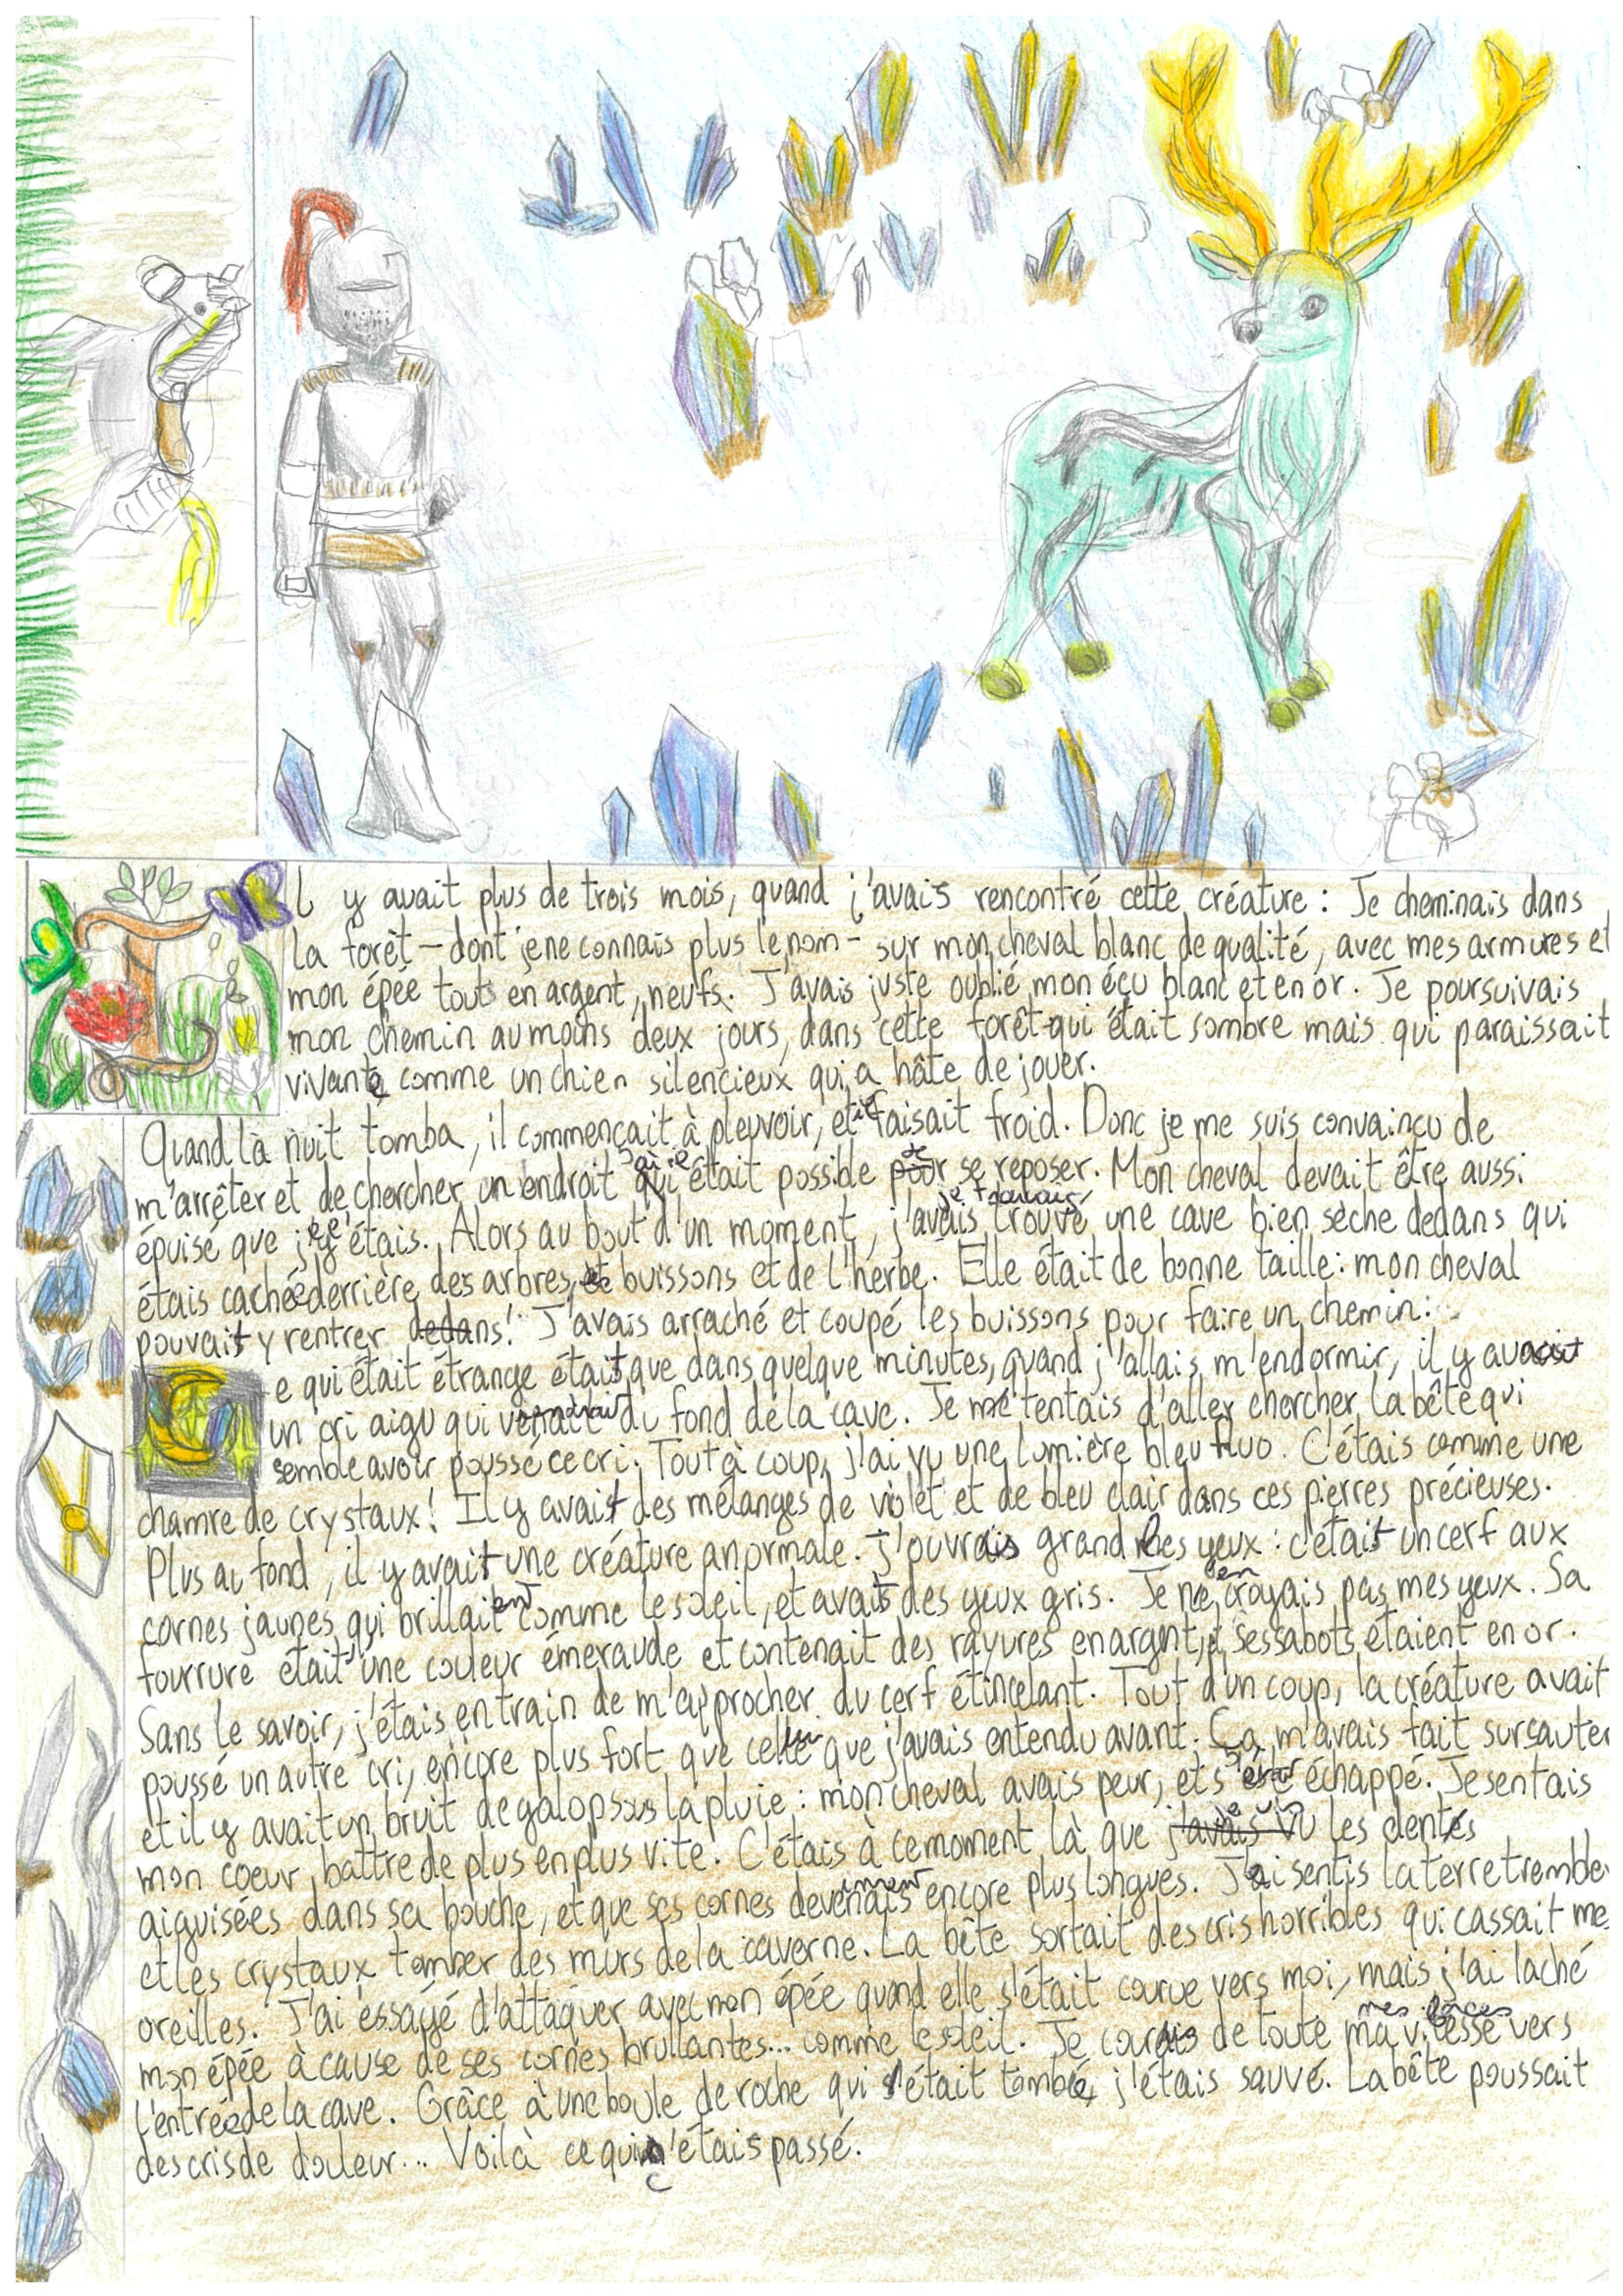 Il y avait plus de trois mois, quand j'avais rencontré cette créature : Je cheminais dans
la forêt – dont je ne connais plus le nom – sur mon cheval blanc de qualité, avec mes armures et
mon épée touts en argent, neufs. J'avais juste oublié mon éçu blanc et en or. Je poursuivais
mon chemin au moins deux jours, dans cette forêt qui était sombre mais qui paraissait
vivante comme un chien silencieux qui a hâte de jouer.
Quand la nuit tomba, il commençait à pleuvoir, et il faisait froid. Donc je me suis convaincu de
m'arrêter et de chercher un endroit où il était possible de se reposer. Mon cheval devait être aussi
épuisé que je l'étais. Alors au bout d'un moment, je trouvais une cave bien sèche dedans qui
étais cachée derrière des arbres, buissons et de l'herbe. Elle était de bonne taille : mon cheval
pouvait y rentrer dedans ! J'avais arraché et coupé les buissons pour faire un chemin :
Ce qui était étrange était que dans quelque minutes, quand j'allais m'endormir, il y avait
un cri aigu qui venait du fond de la cave. Je me tentais d'aller chercher la bête qui
semble avoir poussé ce cri. Tout à coup, j'ai vu une lumière bleu fluo. C'étais comme une
chamre de crystaux ! Il y avait des mélanges de violet et de bleu clair dans ces pierres précieuses.
Plus au fond, il y avait une créature anormale. J'ouvrais grand les yeux : c'était un cerf aux
cornes jaunes qui brillaient comme le soleil, et avait des yeux gris. Je n'en croyais pas mes yeux. Sa
fourrure était une couleur émeraude et contenait des rayures en argent, ses sabots étaient en or.
Sans le savoir, j'étais en train de m'approcher du cerf étincelant. Tout d'un coup, la créature avait
poussé un autre cri, encore plus fort que celui que j'avais entendu avant. Ça m'avais fait sursauter
et il y avait un bruit de galop sous la pluie : mon cheval avais peur, et s'était échappé. Je sentais
mon coeur battre de plus en plus vite. C'étais à ce moment là que je vis les dents
aiguisées dans sa bouche, et que ses cornes devenaient encore plus longues. J'ai sentis la terre trembler
et les crystaux tomber des murs de la caverne. La bête sortait des cris horribles qui cassait mes
oreilles. J'ai essayé d'attaquer avec mon épée quand elle s'était courue vers moi, mais j'ai laché
mon épée à cause de ses cornes brullantes... comme le soleil. Je courais de toute mes forces vers
l'entrée de la cave. Grâce à une boule de roche qui était tombée, j'étais sauvé. La bête poussait
des cris de douleur... Voilà ce qui c'étais passé.